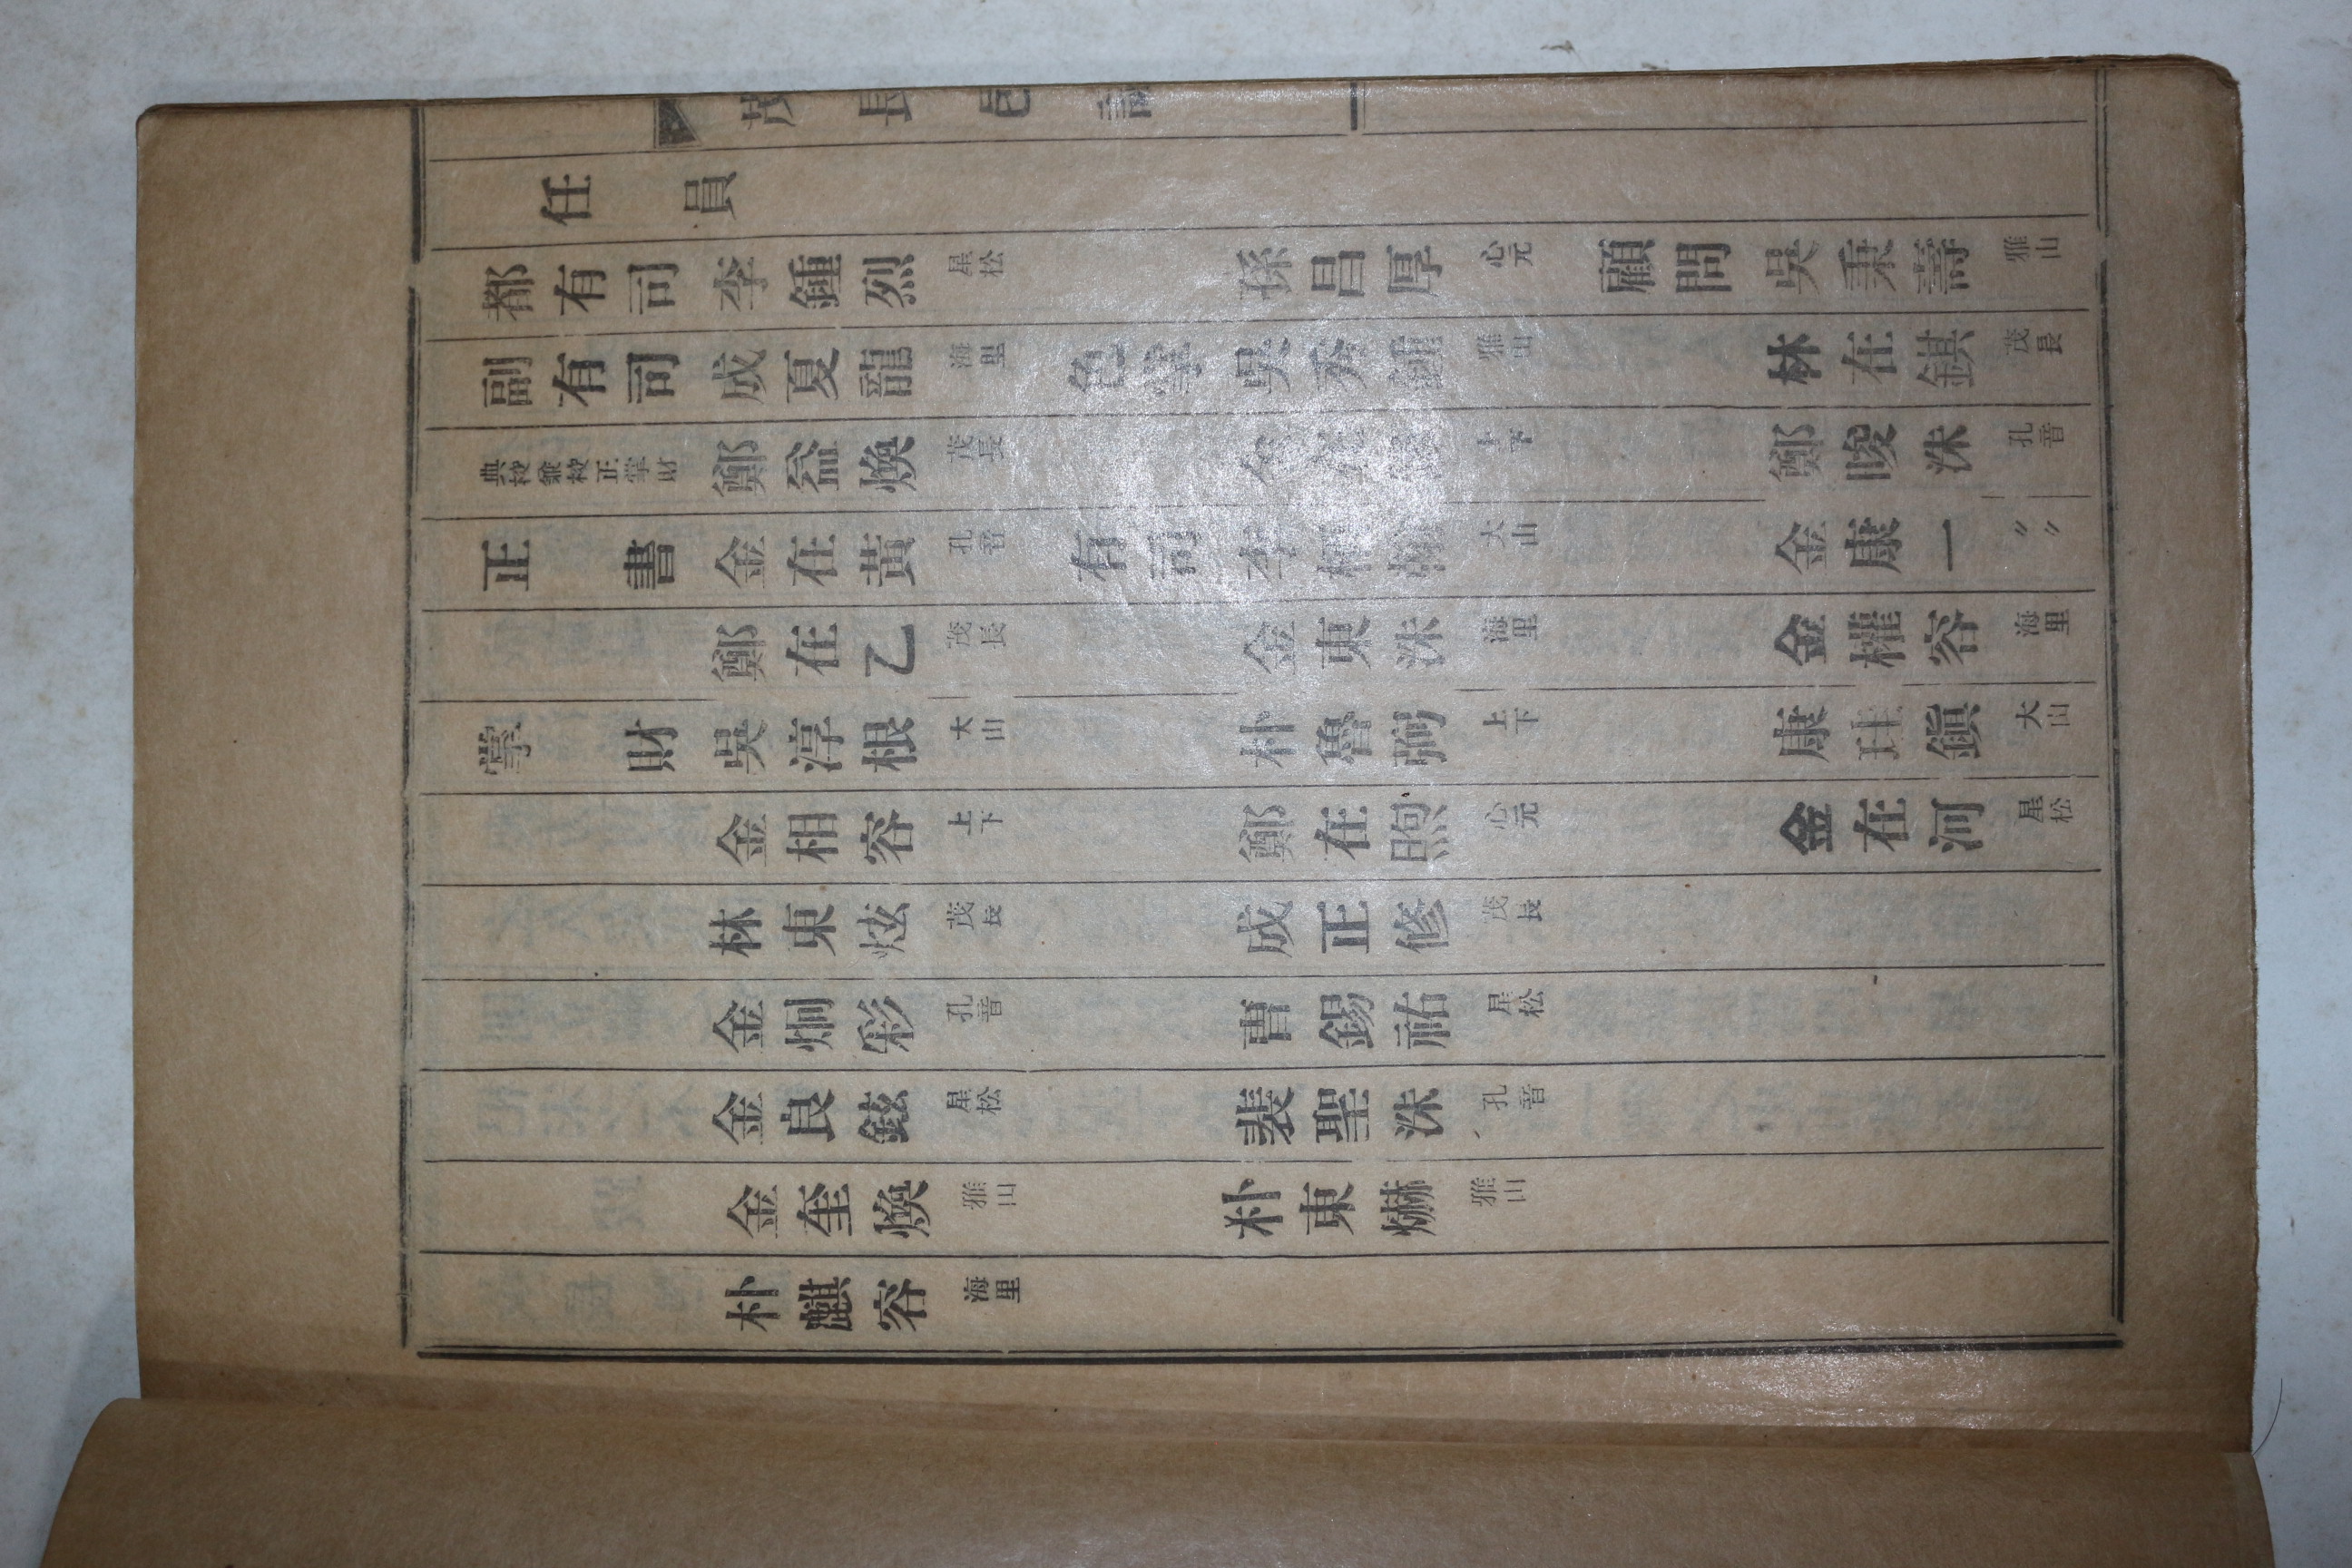 茂長邑誌
任員
都有司 李鍾烈 星松 孫昌厚 心元 顧問 吳秉壽 雅山
副有司 成夏龍 海里 色掌 吳 雅山 林在錤 茂長
典校兼校正掌財 鄭益煥 茂長 上下 鄭晙洙 孔音
正書 金在黃 孔音 有司 李 大山 金康一 〃〃
鄭在乙 茂長 金東洙 海里 金權容 海里
掌財 吳淳根 大山 朴魯弼 上下 康珪鎭 大山
金相容 上下 鄭在煦 心元 金在河 星松
林東炫 茂長 成正修 茂長
金炯彩 孔音 曹錫祐 星松
金良鉉 星松 裴聖洙 孔音
金奎煥 雅山 朴東爀 雅山
朴麒容 海里